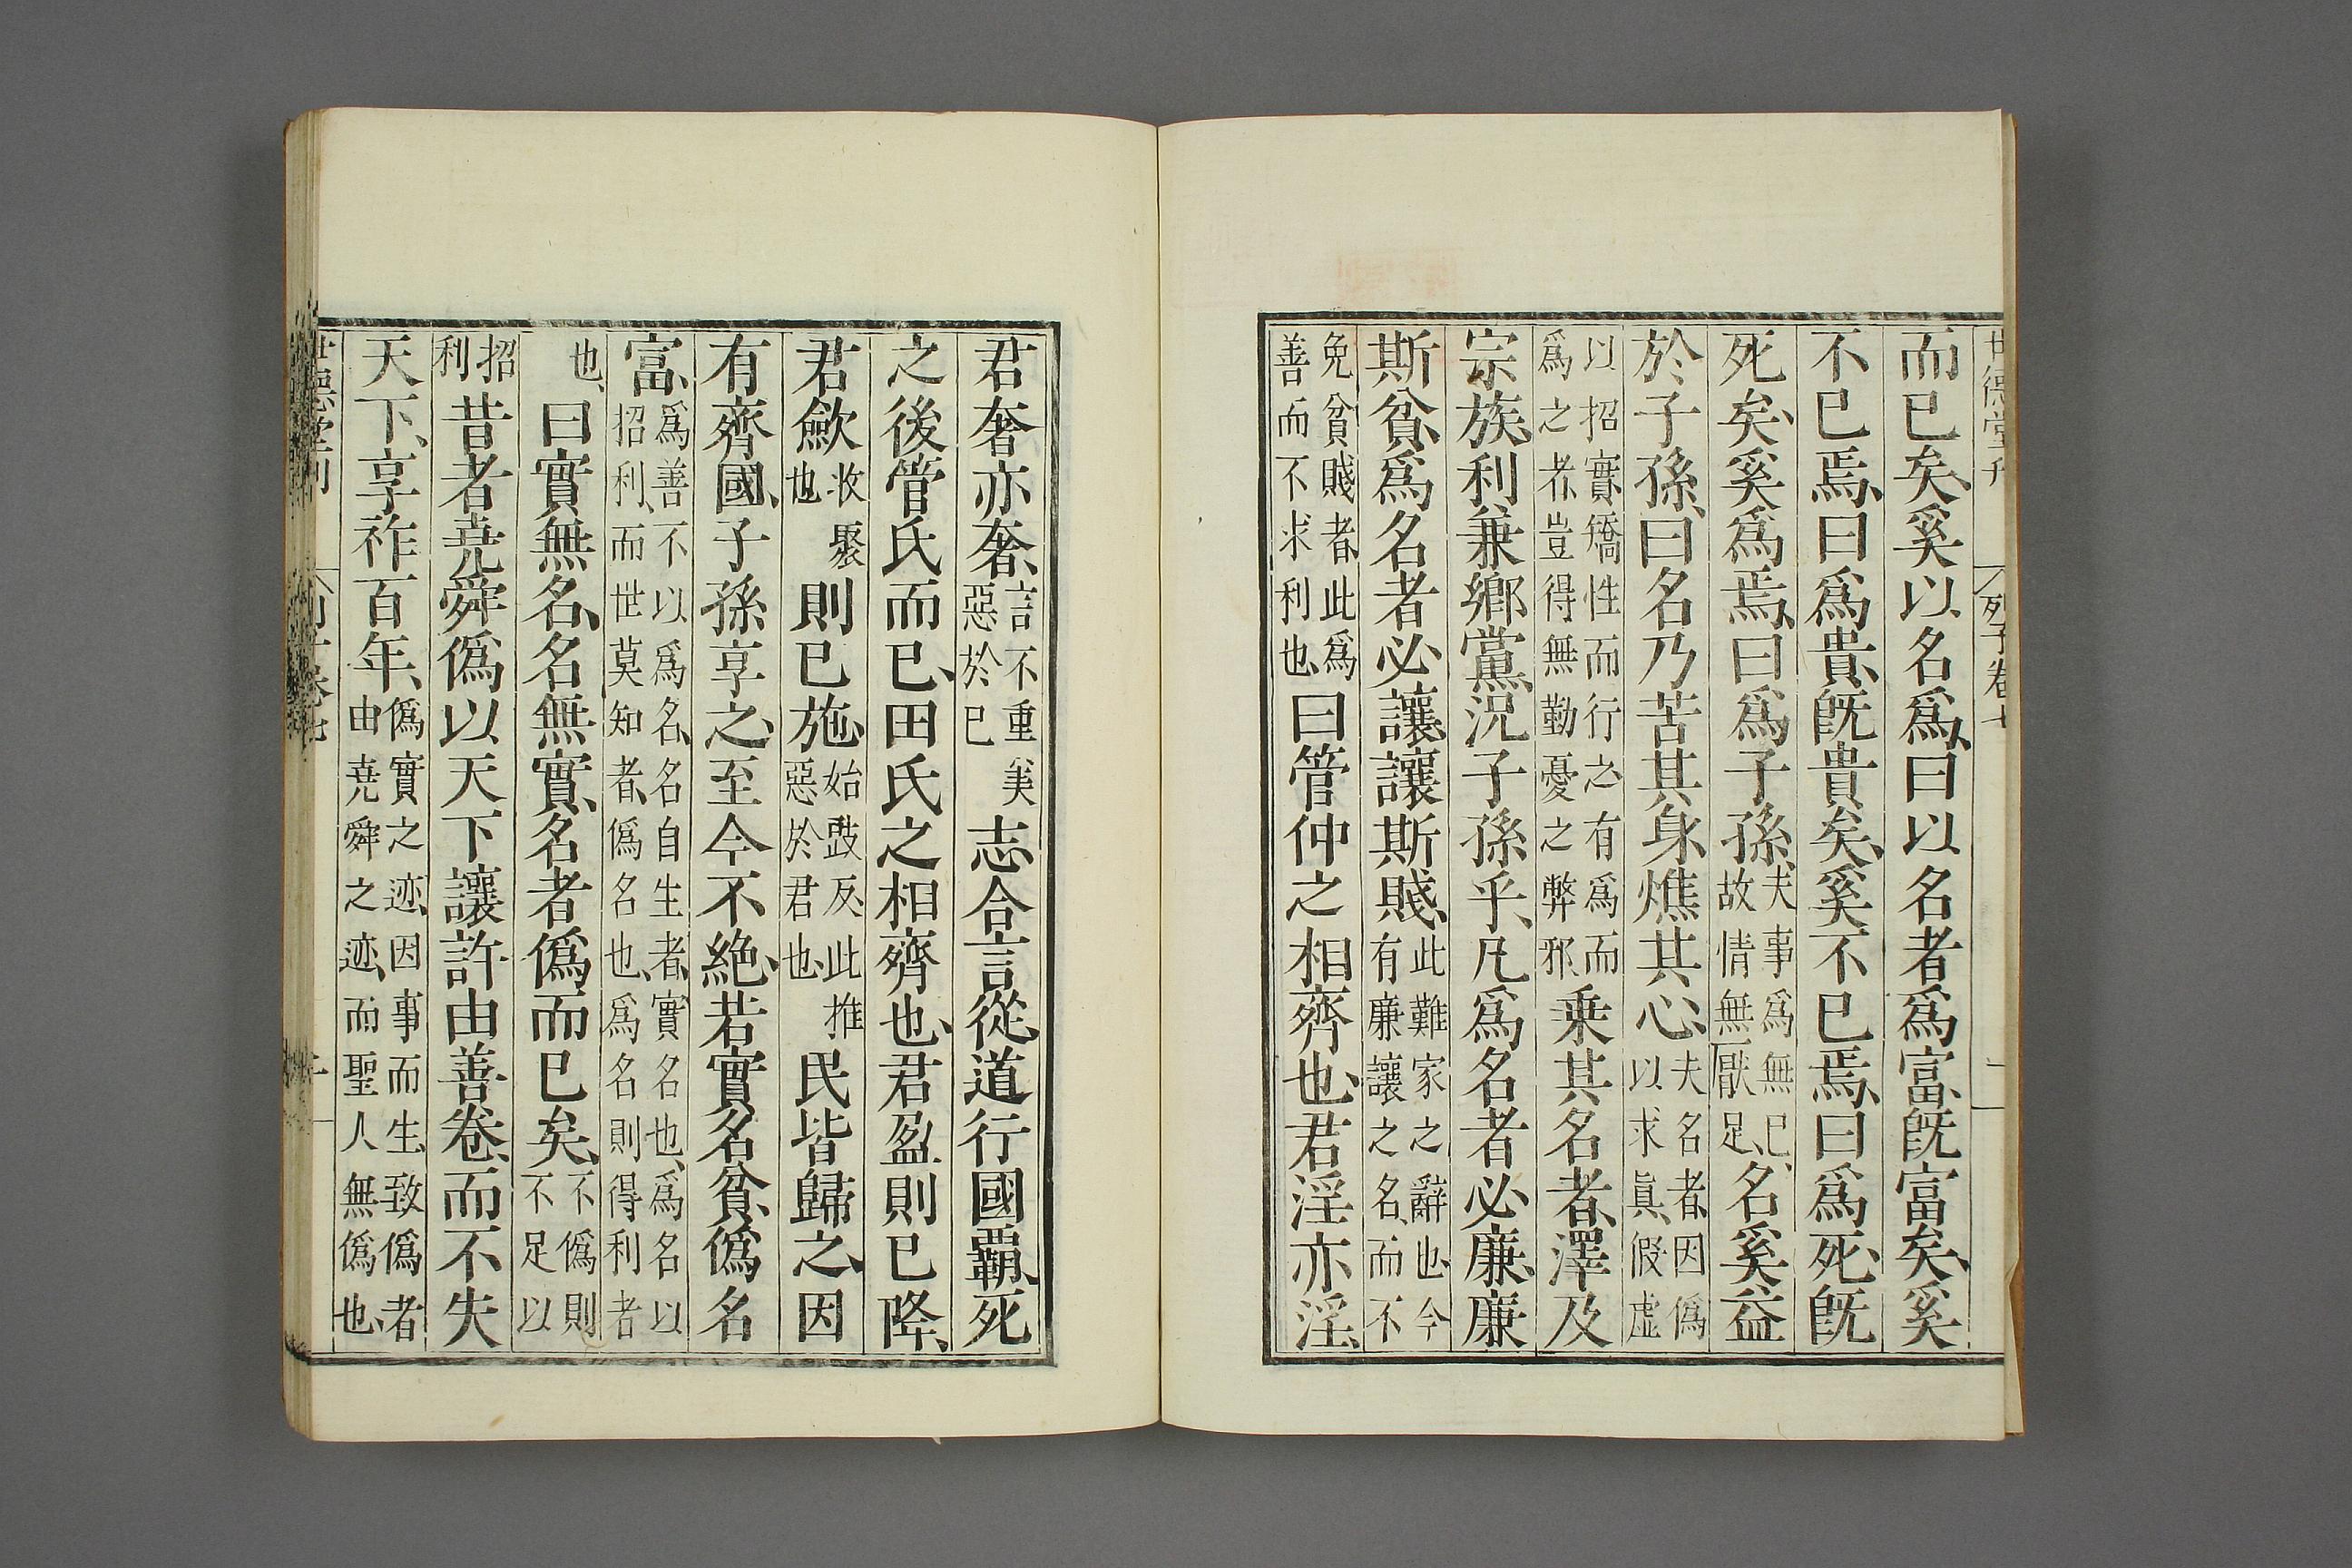 世德堂刊 列子卷七
而已矣、奚以名爲、曰以名者爲富、既富矣、奚
不已焉、曰爲貴、既貴矣、奚不已焉、曰爲死、既
死矣、奚爲焉、曰爲子孫、夫事爲無已、故情無厭足、名奚益
於子孫、曰名乃苦其身燋其心、夫名者、因僞以求眞、假虛
以招實、矯性而行之、有爲而爲之者、豈得無勤憂之弊邪、乘其名者、澤及
宗族、利兼鄉黨、況子孫乎、凡爲名者必廉、廉
斯貧、爲名者必讓、讓斯賤、此難家之辭也、今有廉讓之名、而不
免貧賤者、此爲善而不求利也、曰管仲之相齊也、君淫亦淫、
君奢亦奢、言不重美惡於已志合言從道行國霸、死
之後管氏而已、田氏之相齊也、君盈則已降、
君歛收聚也則已施、始豉反、此推惡於君也、民皆歸之、因
有齊國、子孫享之、至今不絶、若實名貧、僞名
富、爲善不以爲名、名自生者、實名也、爲名以招利、而世莫知者、僞名也、爲名則得利者
也、曰實無名、名無實、名者僞而已矣、不僞則不足以
招利昔者堯舜僞以天下讓許由善卷、而不失
天下、享祚百年、僞實之迹、因事而生、致僞者由堯舜之迹、而聖人無僞也、